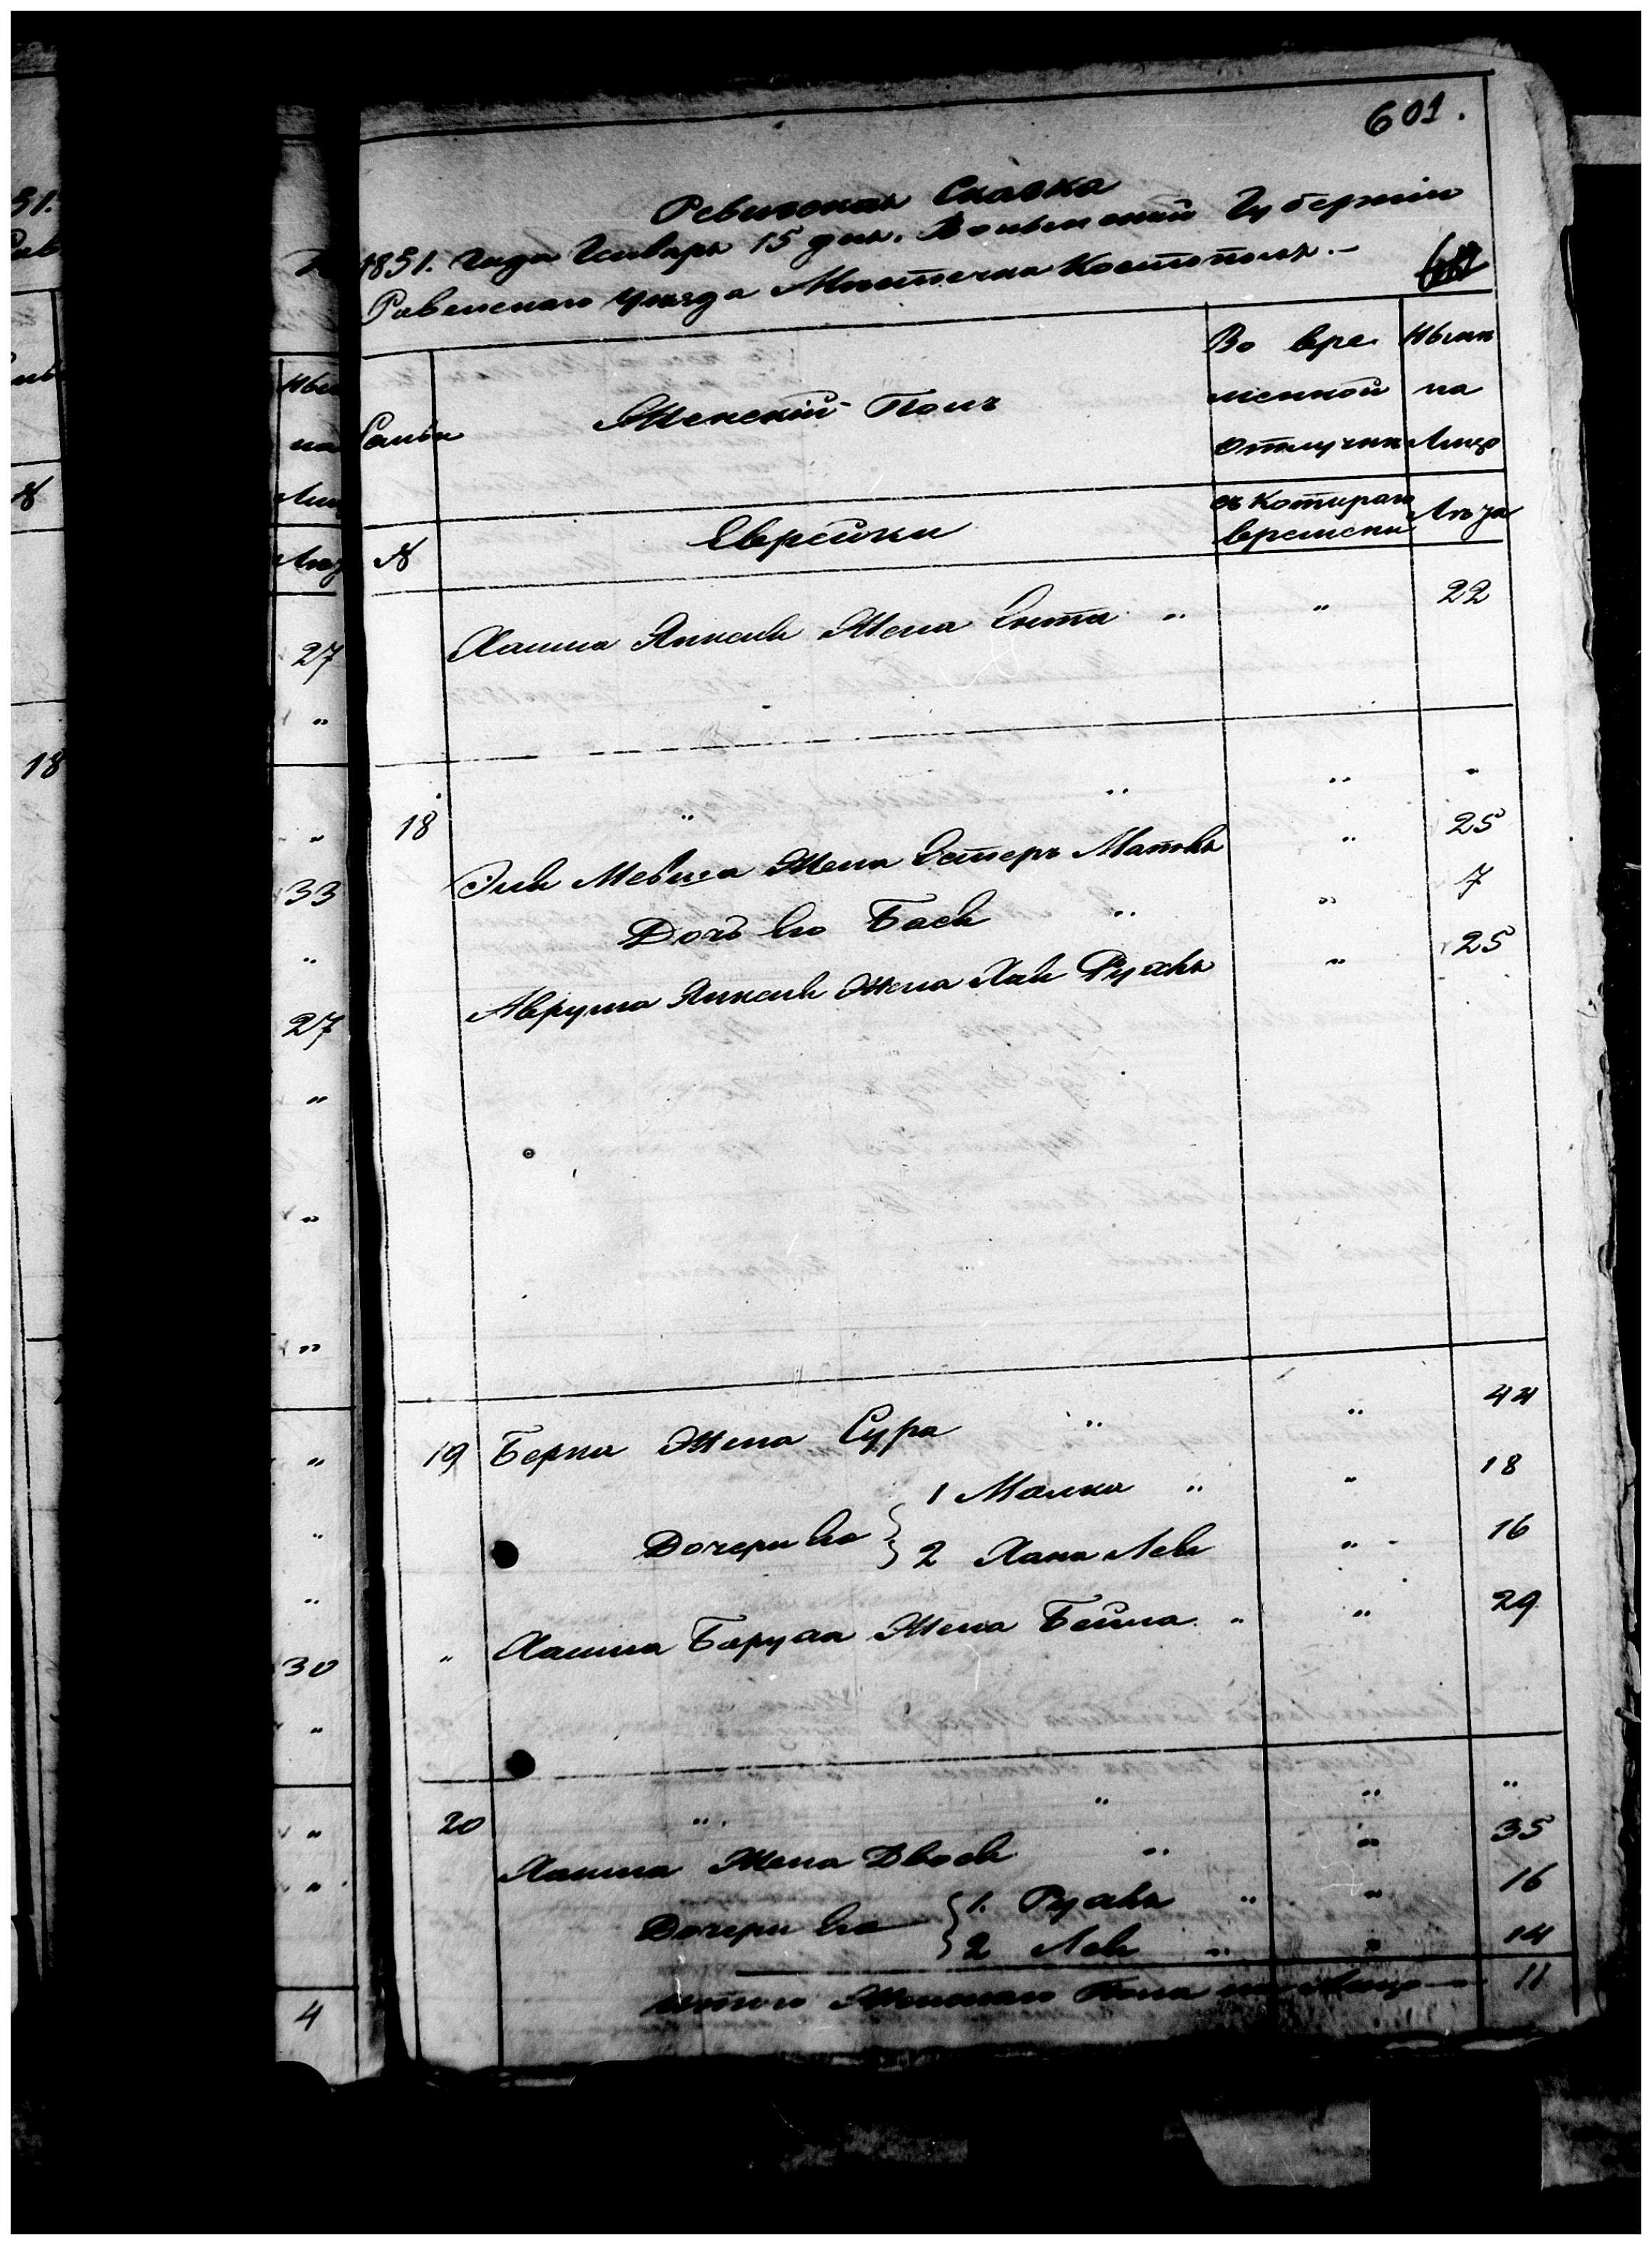 601.
Ревизская Сказка
1851. Года Генваря 15 дня. Волынской Губернии
Ровенского уезда Местечка Костополя.-
Семьи
Женскій Полъ
Во вре
менной
отлучки
Ныне
на
Лицо
№
Еврейки
съ которого
времени
Лета
Хаима Янкеля Жена Ента " " 22
18 " " " "
Эли Мевша Жена Естеръ Матля " 25
Дочь его Бася " " 7
Аврума Янкеля Жена Хая Рухля " 25
19 Берка Жена Сура " " 44
Дочери его
1 Малка " " 18
2 Хана Лея " 16
" Хаима Баруха Жена Бейла " " 29
20 " " " "
Хаима Жена Двося " " 35
Дочери его
1. Рухля " " 16
2 Лея " " 14
Итого Женского Пола на Лицо — 11
27
"
"
33
"
27
"
"
"
"
"
"
30
"
"
"
4
18